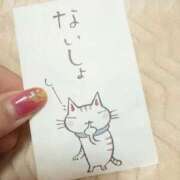 ないしょ